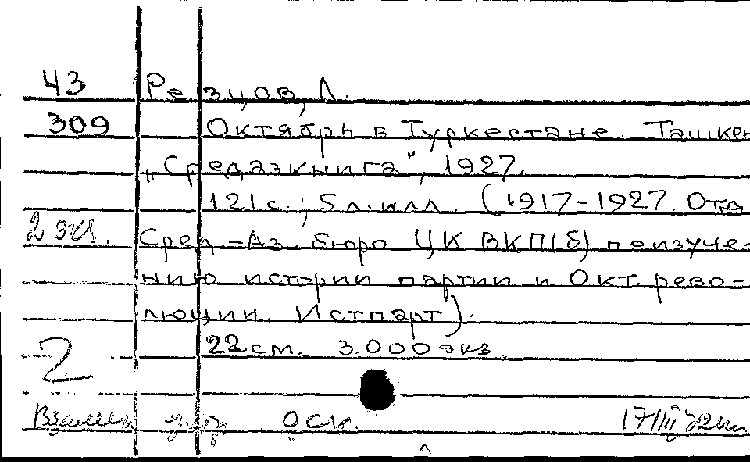 43 Резцов, Л.
309 Октябрь в Туркестане. Ташкен
„Средазкнига", 1927.
121 с.; 5 л. илл. (1917-1927. Отд
2 экз. Сред.-Аз. бюро ЦК ВКП(б) по изуче-
нию истории партии и Окт. рево-
люции. Истпарт).
22 см. 3.000 экз.
2
Взамен
17/III